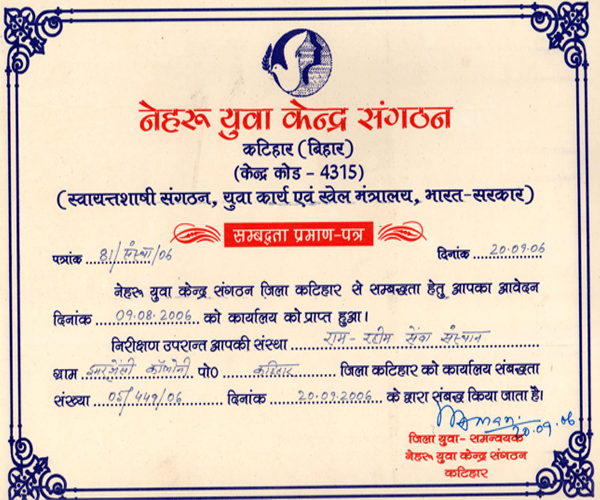 नेहरू युवा केन्द्र संगठन
कटिहार (बिहार)
(केन्द्र कोड - 4315)
(स्वायत्तशाषी संगठन, युवा कार्य एवं खेल मंत्रालय, भारत-सरकार)
सम्बद्धता प्रमाण-पत्र
पत्रांक 81/संस्था/06 दिनांक 20.09.06
नेहरू युवा केन्द्र संगठन ज़िला कटिहार से सम्बद्धता हेतु आपका आवेदन
दिनांक 09.08.2006 को कार्यालय को प्राप्त हुआ।
निरीक्षण उपरान्त आपकी संस्था राम-रहीम सेवा संस्थान
ग्राम इमरजेंसी कॉलोनी पो0 कटिहार जिला कटिहार को कार्यालय संबद्धता
संख्या 05/449/06 दिनांक 20.09.2006 के द्वारा संबद्ध किया जाता है।
20.09.06
जिला युवा- समन्वयक
नेहरू युवा केन्द्र संगठन
कटिहार